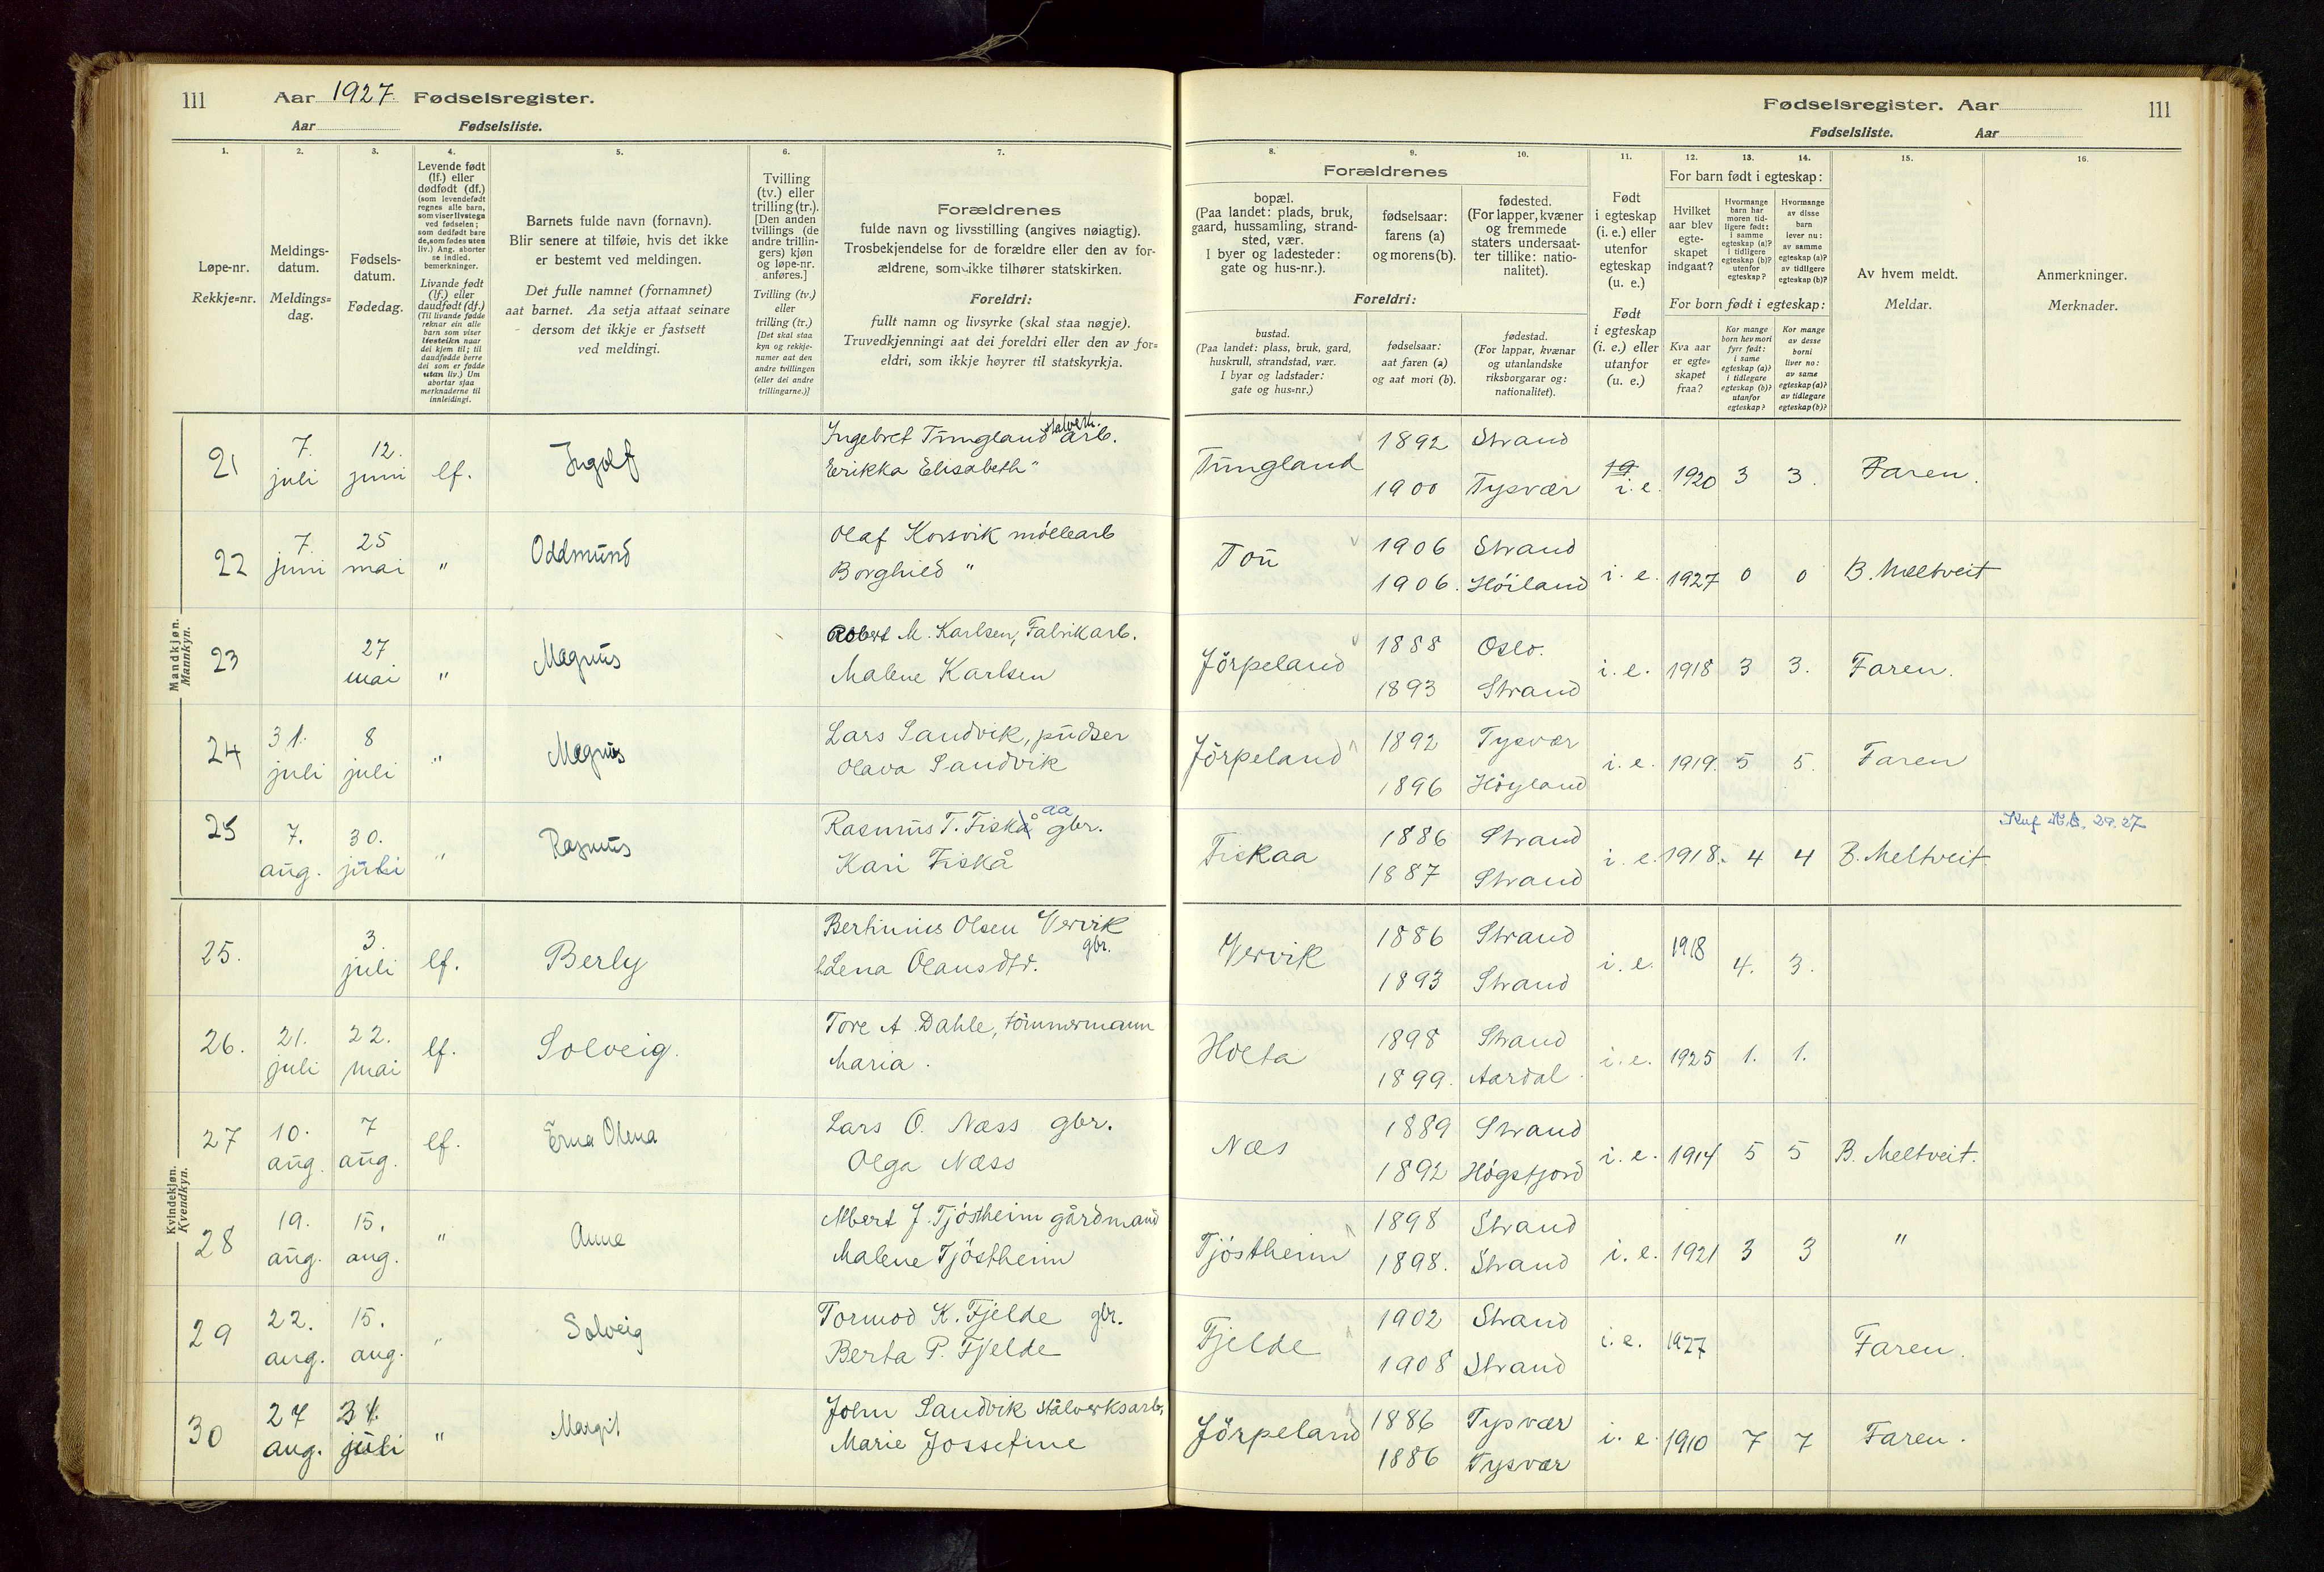 111 Aar 1927. Fødselsregister.
Aar Fødselsliste.
Fødselsregister. Aar 111
Fødselsliste. Aar
1. 2. 3. 4. 5. 6. 7. 8. 9. 10. 11. 12. 13. 14. 15. 16.
Løpe-nr.
Rekkje=nr.
Meldings-
datum.
Meldings=
dag.
Fødsels-
datum.
Fødedag.
Levende født
(lf.) eller
dødfødt (df.)
(som levendefødt
regnes alle barn,
som viser livstegn
ved fødselen;
som dødfødt bare
de, som fødes uten
liv.) Ang. aborter
se indled.
bemerkninger.
Livande født
(lf.) eller
daudfødt (df.)
(Til livande fødde
reknar ein alle
barn som viser
livsteikn naar
dei kjem til; til
daudfødde berre
dei som er fødde
utan liv.) Um
abortar sjaa
merknaderne til
innleidingi.
Barnets fulde navn (fornavn).
Blir senere at tilføie, hvis det ikke
er bestemt ved meldingen.
Det fulle namnet (fornamnet)
aat barnet. Aa setja attaat seinare
dersom det ikkje er fastsett
ved meldingi.
Tvilling
(tv.) eller
trilling (tr.).
[Den anden
tvillings (de
andre trillin-
gers) kjøn
og løpe-nr.
anføres.]
Tvilling (tv.)
eller
trilling (tr.)
[Det skal staa
kyn og rekkje-
numer aat den
andre tvillingen
(eller dei andre
trillingarne.)]
Forældrenes
fulde navn og livsstilling (angives nøiagtig).
Trosbekjendelse for de forældre eller den av for-
ældrene, som ikke tilhører statskirken.
Foreldri:
fullt namn og livsyrke (skal staa nøgje).
Truvedkjenningi aat dei foreldri eller den av for=
eldri, som ikkje høyrer til statskyrkja.
Forældrenes
bopæl.
(Paa landet: plads, bruk,
gaard, hussamling, strand-
sted, vær.
I byer og ladesteder:
gate og hus-nr.).
fødselsaar:
farens (a)
og morens (b).
fødested.
(For lapper, kvæner
og fremmede
staters undersaat-
ter tillike: natio-
nalitet).
Foreldri:
bustad.
(Paa landet: plass, bruk, gard,
huskrull, strandstad, vær.
I byar og ladstader:
gate og hus=nr.)
fødselsaar:
aat faren (a)
og aat mori (b).
fødestad.
(For lappar, kvænar
og utanlandske
riksborgarar og:
nationalitet).
Født
i egteskap
(i. e.) eller
utenfor
egteskap
(u. e.)
Født
i egteskap
(i. e.) eller
utanfor
(u. e.)
For barn født i egteskap:
Hvilket
aar blev
egte-
skapet
indgaat?
Hvormange
barn har
moren tid-
ligere født:
i samme
egteskap (a)?
i tidligere
egteskap (b)?
utenfor
egteskap?
Hvormange
av disse
barn
lever nu:
av samme
egteskap (a)?
av tidligere
egteskap (b)?
For born født i egteskap:
Kva aar
er egte=
skapet
fraa?
Kor mange
born hev mori
fyrr født:
i same
egteskap (a)?
i tidlegare
egteskap (b)?
utanfor
egteskap?
Kor mange
av desse
borni
liver no:
av same
egteskap (a)?
av tidlegare
egteskap (b)?
Av hvem meldt.
Meldar.
Anmerkninger.
Merknader.
Mandkjøn.
Mannkyn.
21 7. juli 12. juni lf. Ingolf Ingebret Tungland stalverk. arb. Tungland 1892 Strand 19 i. e. 1920 3 3. Faren.
Erikka Elisabeth " 1900 Tysvær
22 7. juni 25 mai " Oddmund Olaf Korsvik møllearb Tou 1906 Strand i. e. 1927 0 0 B. Meltveit
Borghild " 1906. Höiland
23 27 mai " Magnus Robert M. Karlsen, Fabrikarb. Jörpeland 1888 Oslo. i. e. 1918 3 3. Faren.
Malene Karlsen 1893 Strand
24 31. juli 8 juli " Magnus Lars Sandvik, pudser Jörpeland 1892 Tysvær i. e. 1919. 5 5. Faren
Olava Sandvik 1896 Höyland
25 7. aug. 30. juli " Rasmus Rasmus T. Fiskå aa gbr. Fiskaa 1886 Strand i. e. 1918. 4 4 B. Meltveit.
Kari Fiskå 1887 Strand
Kvindekjøn.
Kvendkyn.
25. 3. juli lf. Berly Bertinius Olsen Vervik gbr. Vervik 1886 Strand i. e. 1918 4. 3.
Lena Olausdtr. 1893 Strand
26. 21. juli 22. mai lf. Solveig. Tore A. Dahle, tömmermann Holta 1898 Strand i. e. 1925 1. 1.
Maria. 1899. Aardal.
27 10. aug. 7 aug. lf. Erna Olena Lars O. Næss gbr. Næs 1889 Strand i. e. 1914 5 5 B. Meltveit.
Olga Næss 1892 Högsfjord
28 19. aug. 15. aug. " Anne Albert J. Tjöstheim gårdmand Tjöstheim 1898 Strand i. e. 1921 3 3 "
Malene Tjöstheim 1898. Strand
29 22. aug. 15. aug. " Solveig Tormod K. Fjelde gbr. Fjelde 1902 Strand i. e. 1927 Faren.
Berta P. Fjelde 1908 Strand
30 27 aug. juli " Margit John Sandvik stålverksarb. Jörpeland 1886 Tysvær i. e. 1910 7 7 Faren.
Marie Jossefine 1886 Tysvær